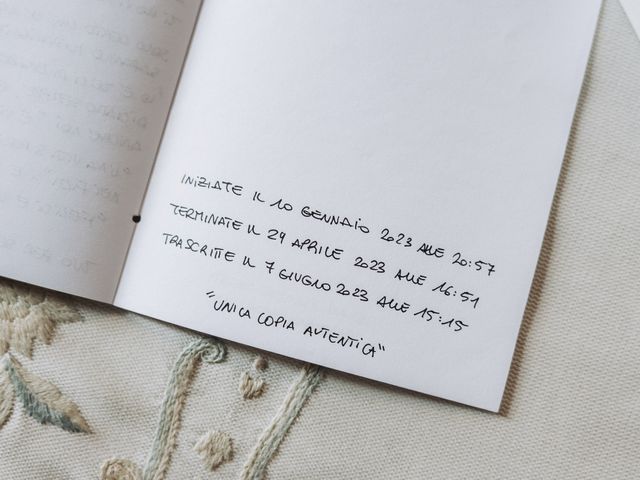 INIZIATE IL 10 GENNAIO 2023 ALLE 20:57
TERMINATE IL 24 APRILE 2023 ALLE 16:51
TRASCRITTE IL 7 GIUGNO 2023 ALLE 15:15
"UNICA COPIA AUTENTICA"